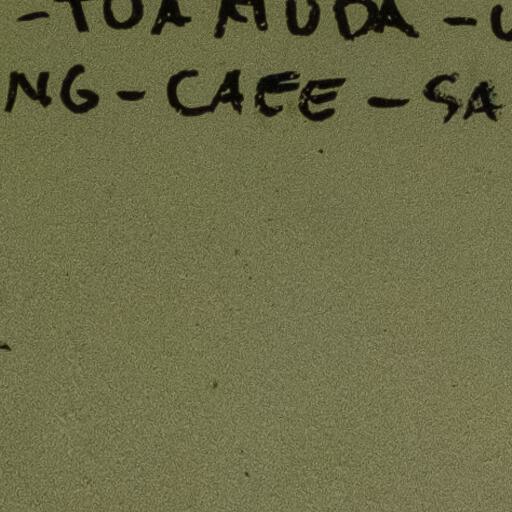 -TUA MUDA-
NG-CAFE-SA